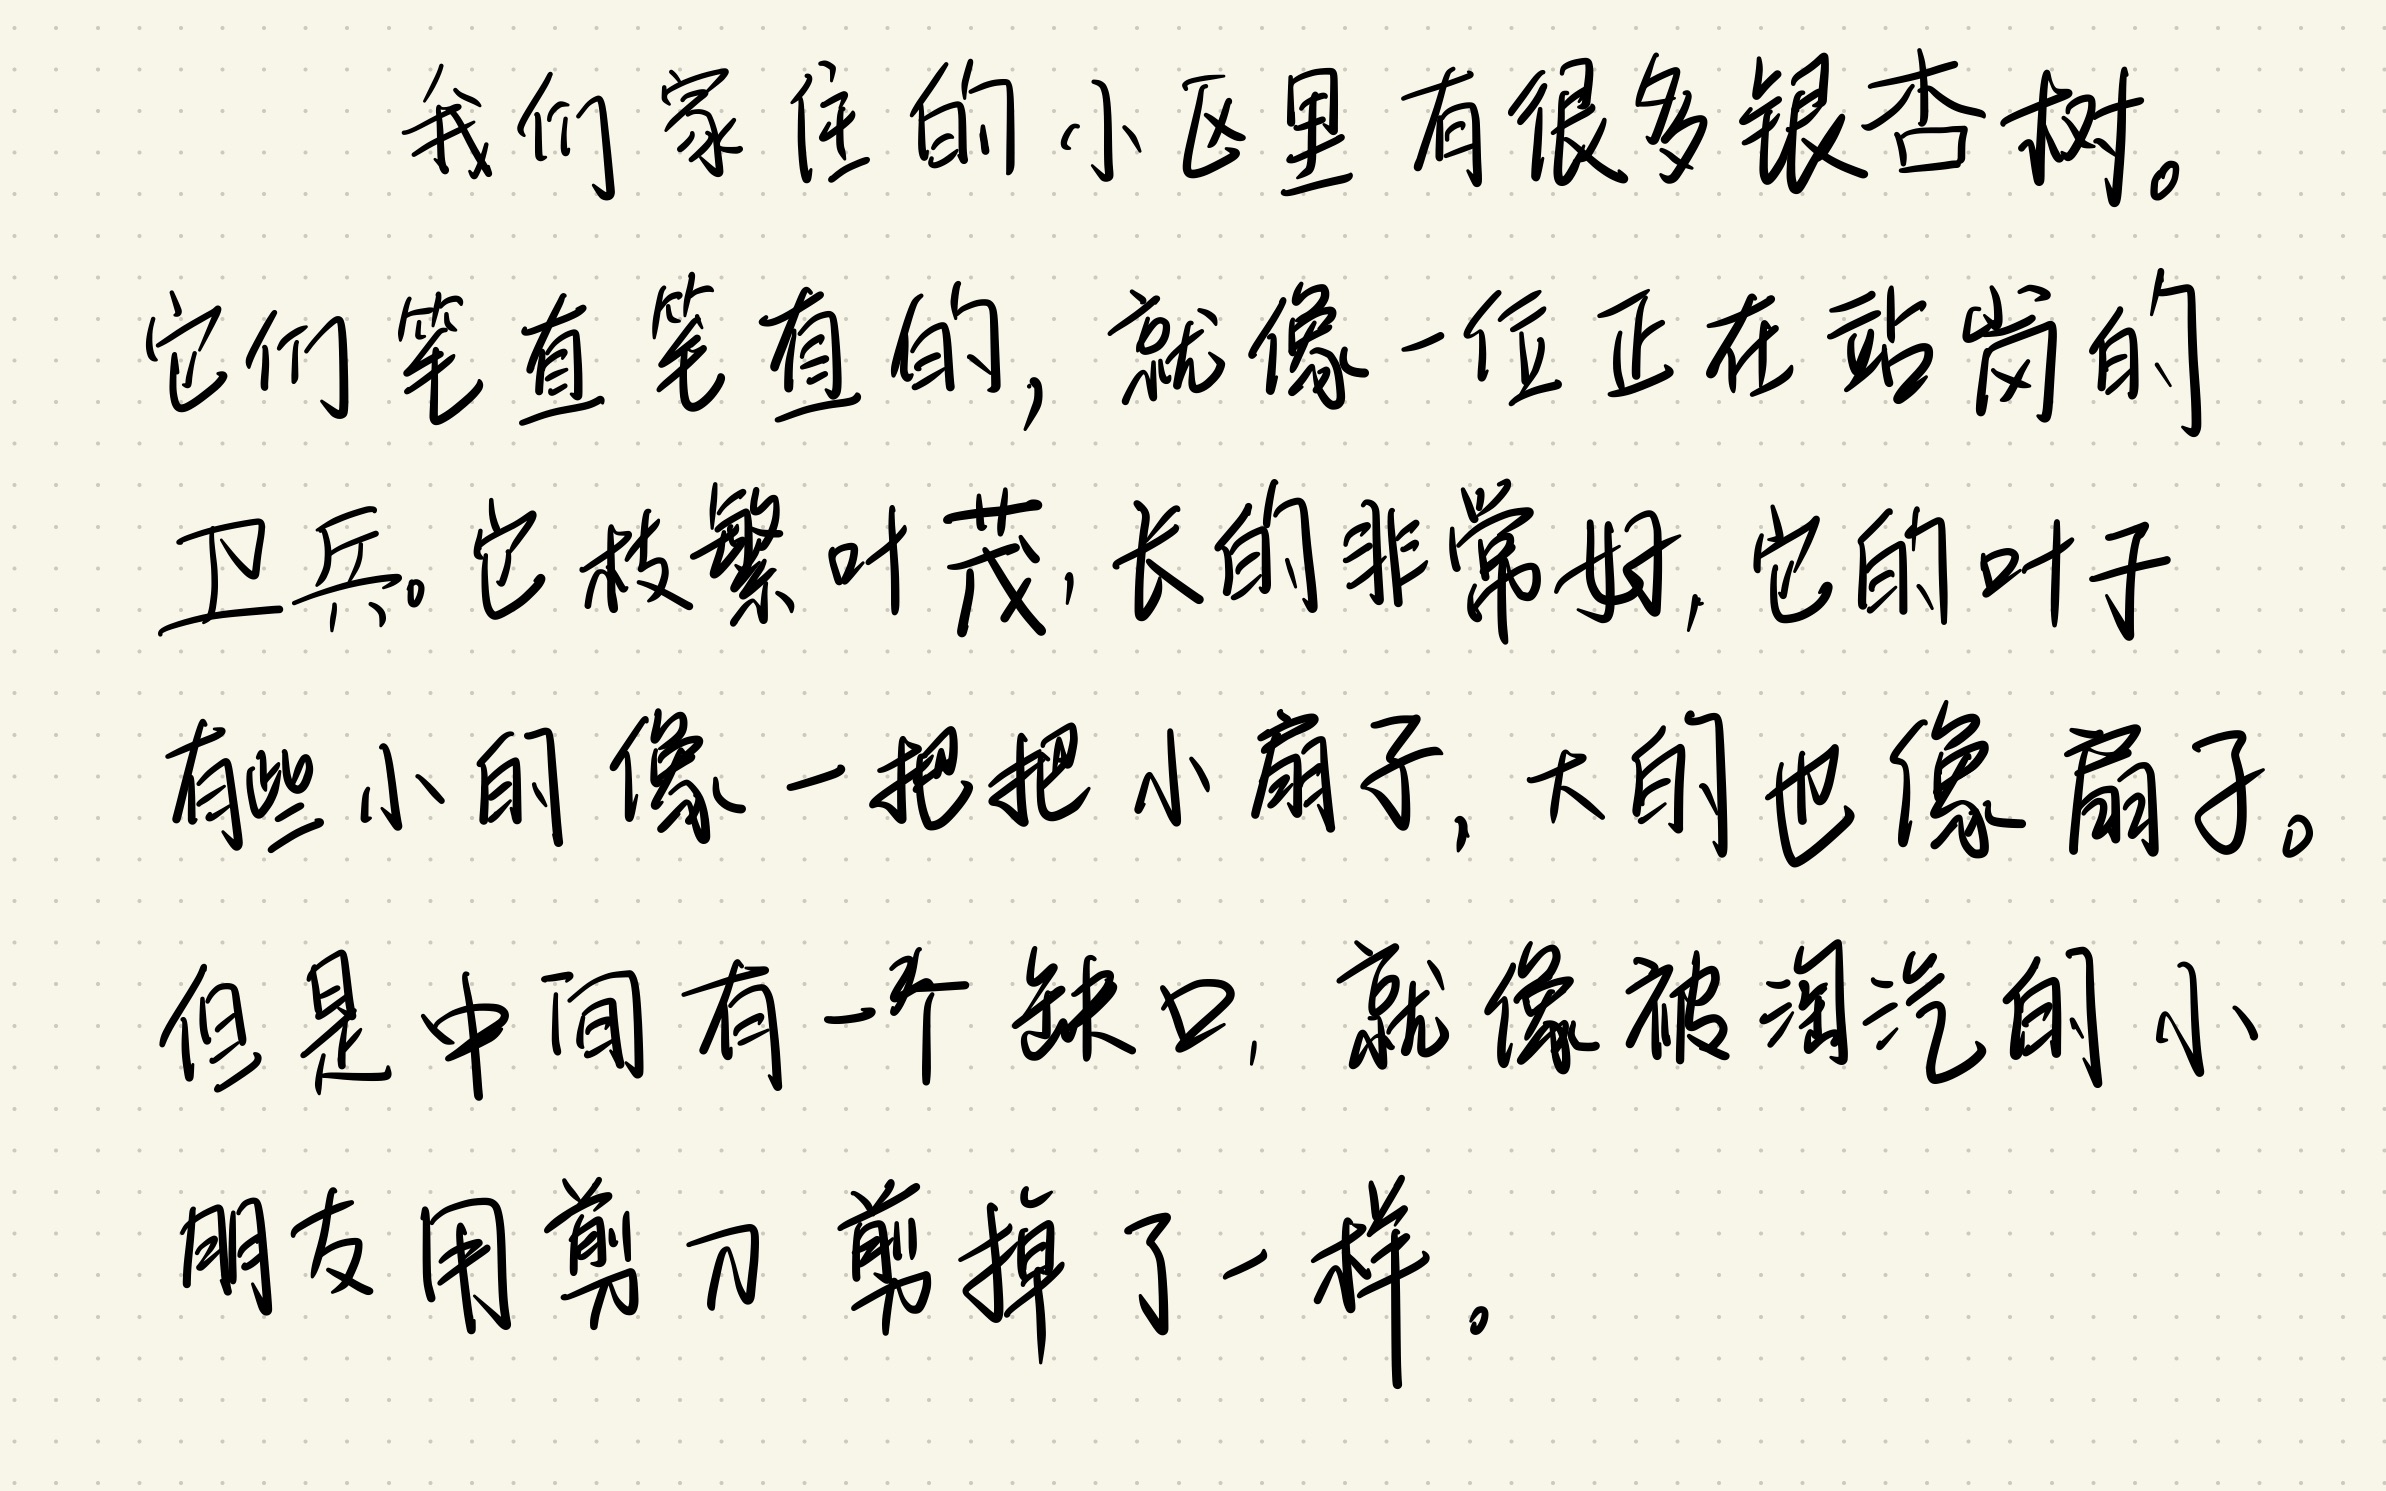 我们家住的小区里有很多银杏树。
它们笔直笔直的，就像一位正在站岗的
卫兵。它枝繁叶茂，长的非常好，它的叶子
有些小的像一把把小扇子，大的也像扇子。
但是中间有一个缺口，就像被淘汽的小
朋友用剪刀剪掉了一样。